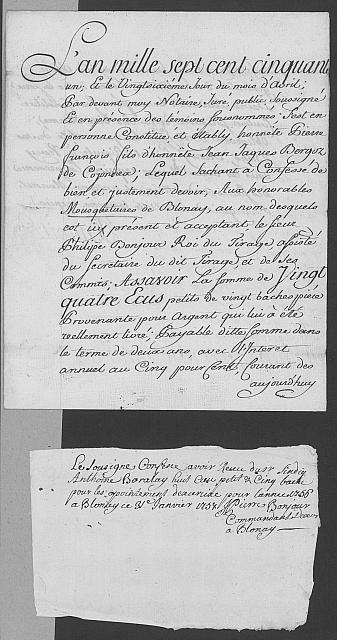 L'an mille sept cent cinquante
un, et le Vingtsixième Jour du mois d'Abril;
Par devant moy Notaire, Juré public, Sousigné
et en présence des témoins sousnommés; S'est en
personne Constitué et Etably, honnête Pierre
François fils d'honnête Jean Jaques
de Lequel Sachant a Confessé de
bien et justement devoir, Aux honorables
Mousquetaires de Blonay, au nom desquels
est icy présent et acceptant le sieur
Philippe Bonjour Roi du Tirage
du Secrétaire du dit Tirage et de Ses
Commis; Assavoir La somme de Vingt
quatre Ecus petits de vingt baches pièce
Provenante pour Argent qui lui à été
réellement livré; Payable ditte Somme dans
le terme de deux ans, avec l'Interet
annuel au Cinq pour Cent, Courant dès
aujourd'huy
Le Sousigné Confesse avoir Receu du sr
Anthoine huit Ecu petit & Cinq bache
pour les pour l'année 1756
a Blonay ce 31e Janvier Pierre Bonjour
Commandant
a Blonay